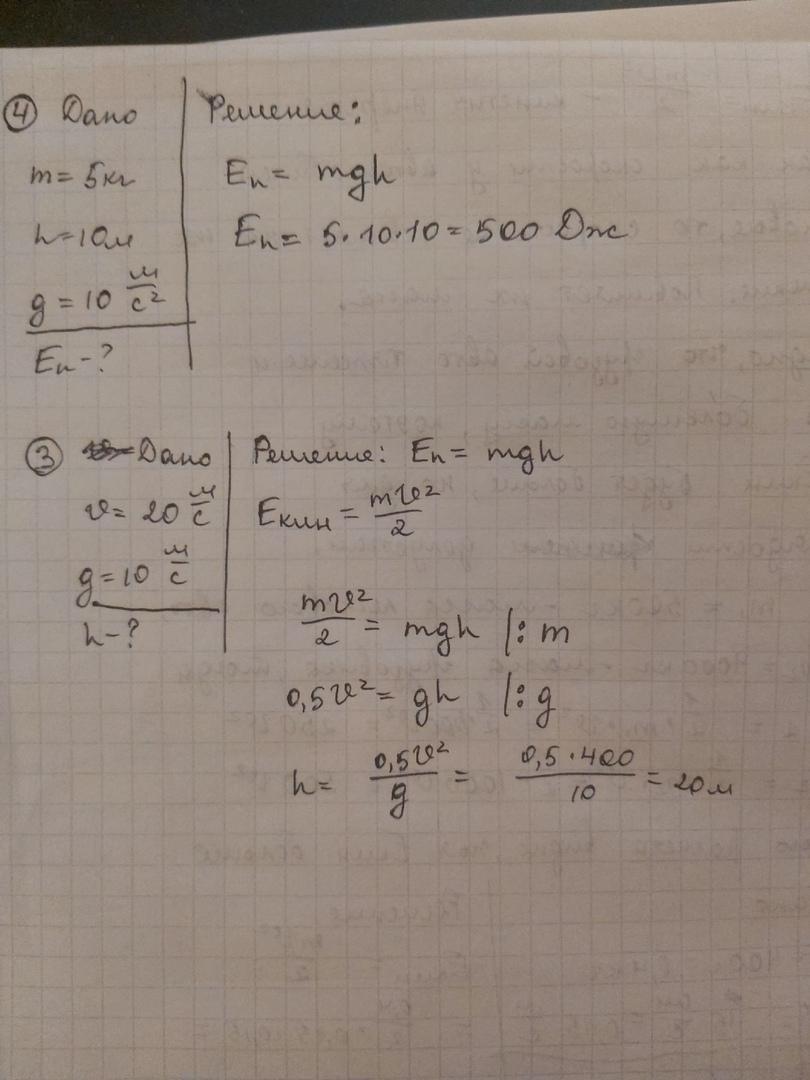 ④ Дано
m = 5кг
h = 10м
g = 10 м/с²
Eп - ?
Решение:
Eп = mgh
Eп = 5·10·10 = 500 Дж
③ Дано
v = 20 м/с
g = 10 м/с
h - ?
Решение: Eп = mgh
Eкин = mv²/2
mv²/2 = mgh |: m
0,5v² = gh |: g
h = 0,5v²/g = 0,5·400/10 = 20м